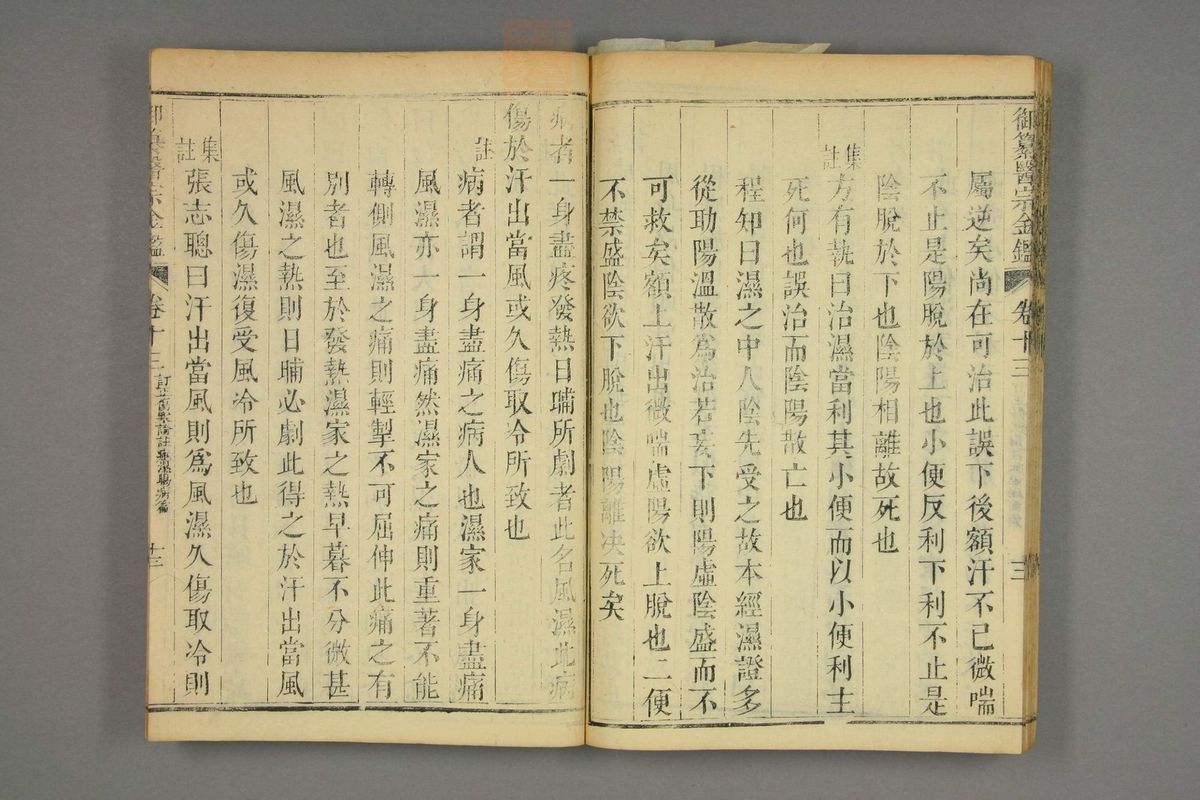 御纂醫宗金鑑 卷十三
屬逆矣尚在可治此誤下後額汗不已微喘
不止是陽脫於上也小便反利下利不止是
陰脫於下也陰陽相離故死也
集註 方有執曰治濕當利其小便而以小便利主
死何也誤治而陰陽散亡也
程知曰濕之中人陰先受之故本經濕證多
從助陽溫散為治若妄下則陽虛陰盛而不
可救矣額上汗出微喘虛陽欲上脫也二便
不禁盛陰欲下脫也陰陽離决死矣
病者一身盡疼發熱日晡所劇者此名風濕此病
傷於汗出當風或久傷取冷所致也
註 病者謂一身盡痛之病人也濕家一身盡痛
風濕亦一身盡痛然濕家之痛則重著不能
轉側風濕之痛則輕掣不可屈伸此痛之有
別者也至於發熱濕家之熱早暮不分微甚
風濕之熱則日晡必劇此得之於汗出當風
或久傷濕復受風冷所致也
集註 張志聰曰汗出當風則爲風濕久傷取冷則
御纂醫宗金鑑 卷十三